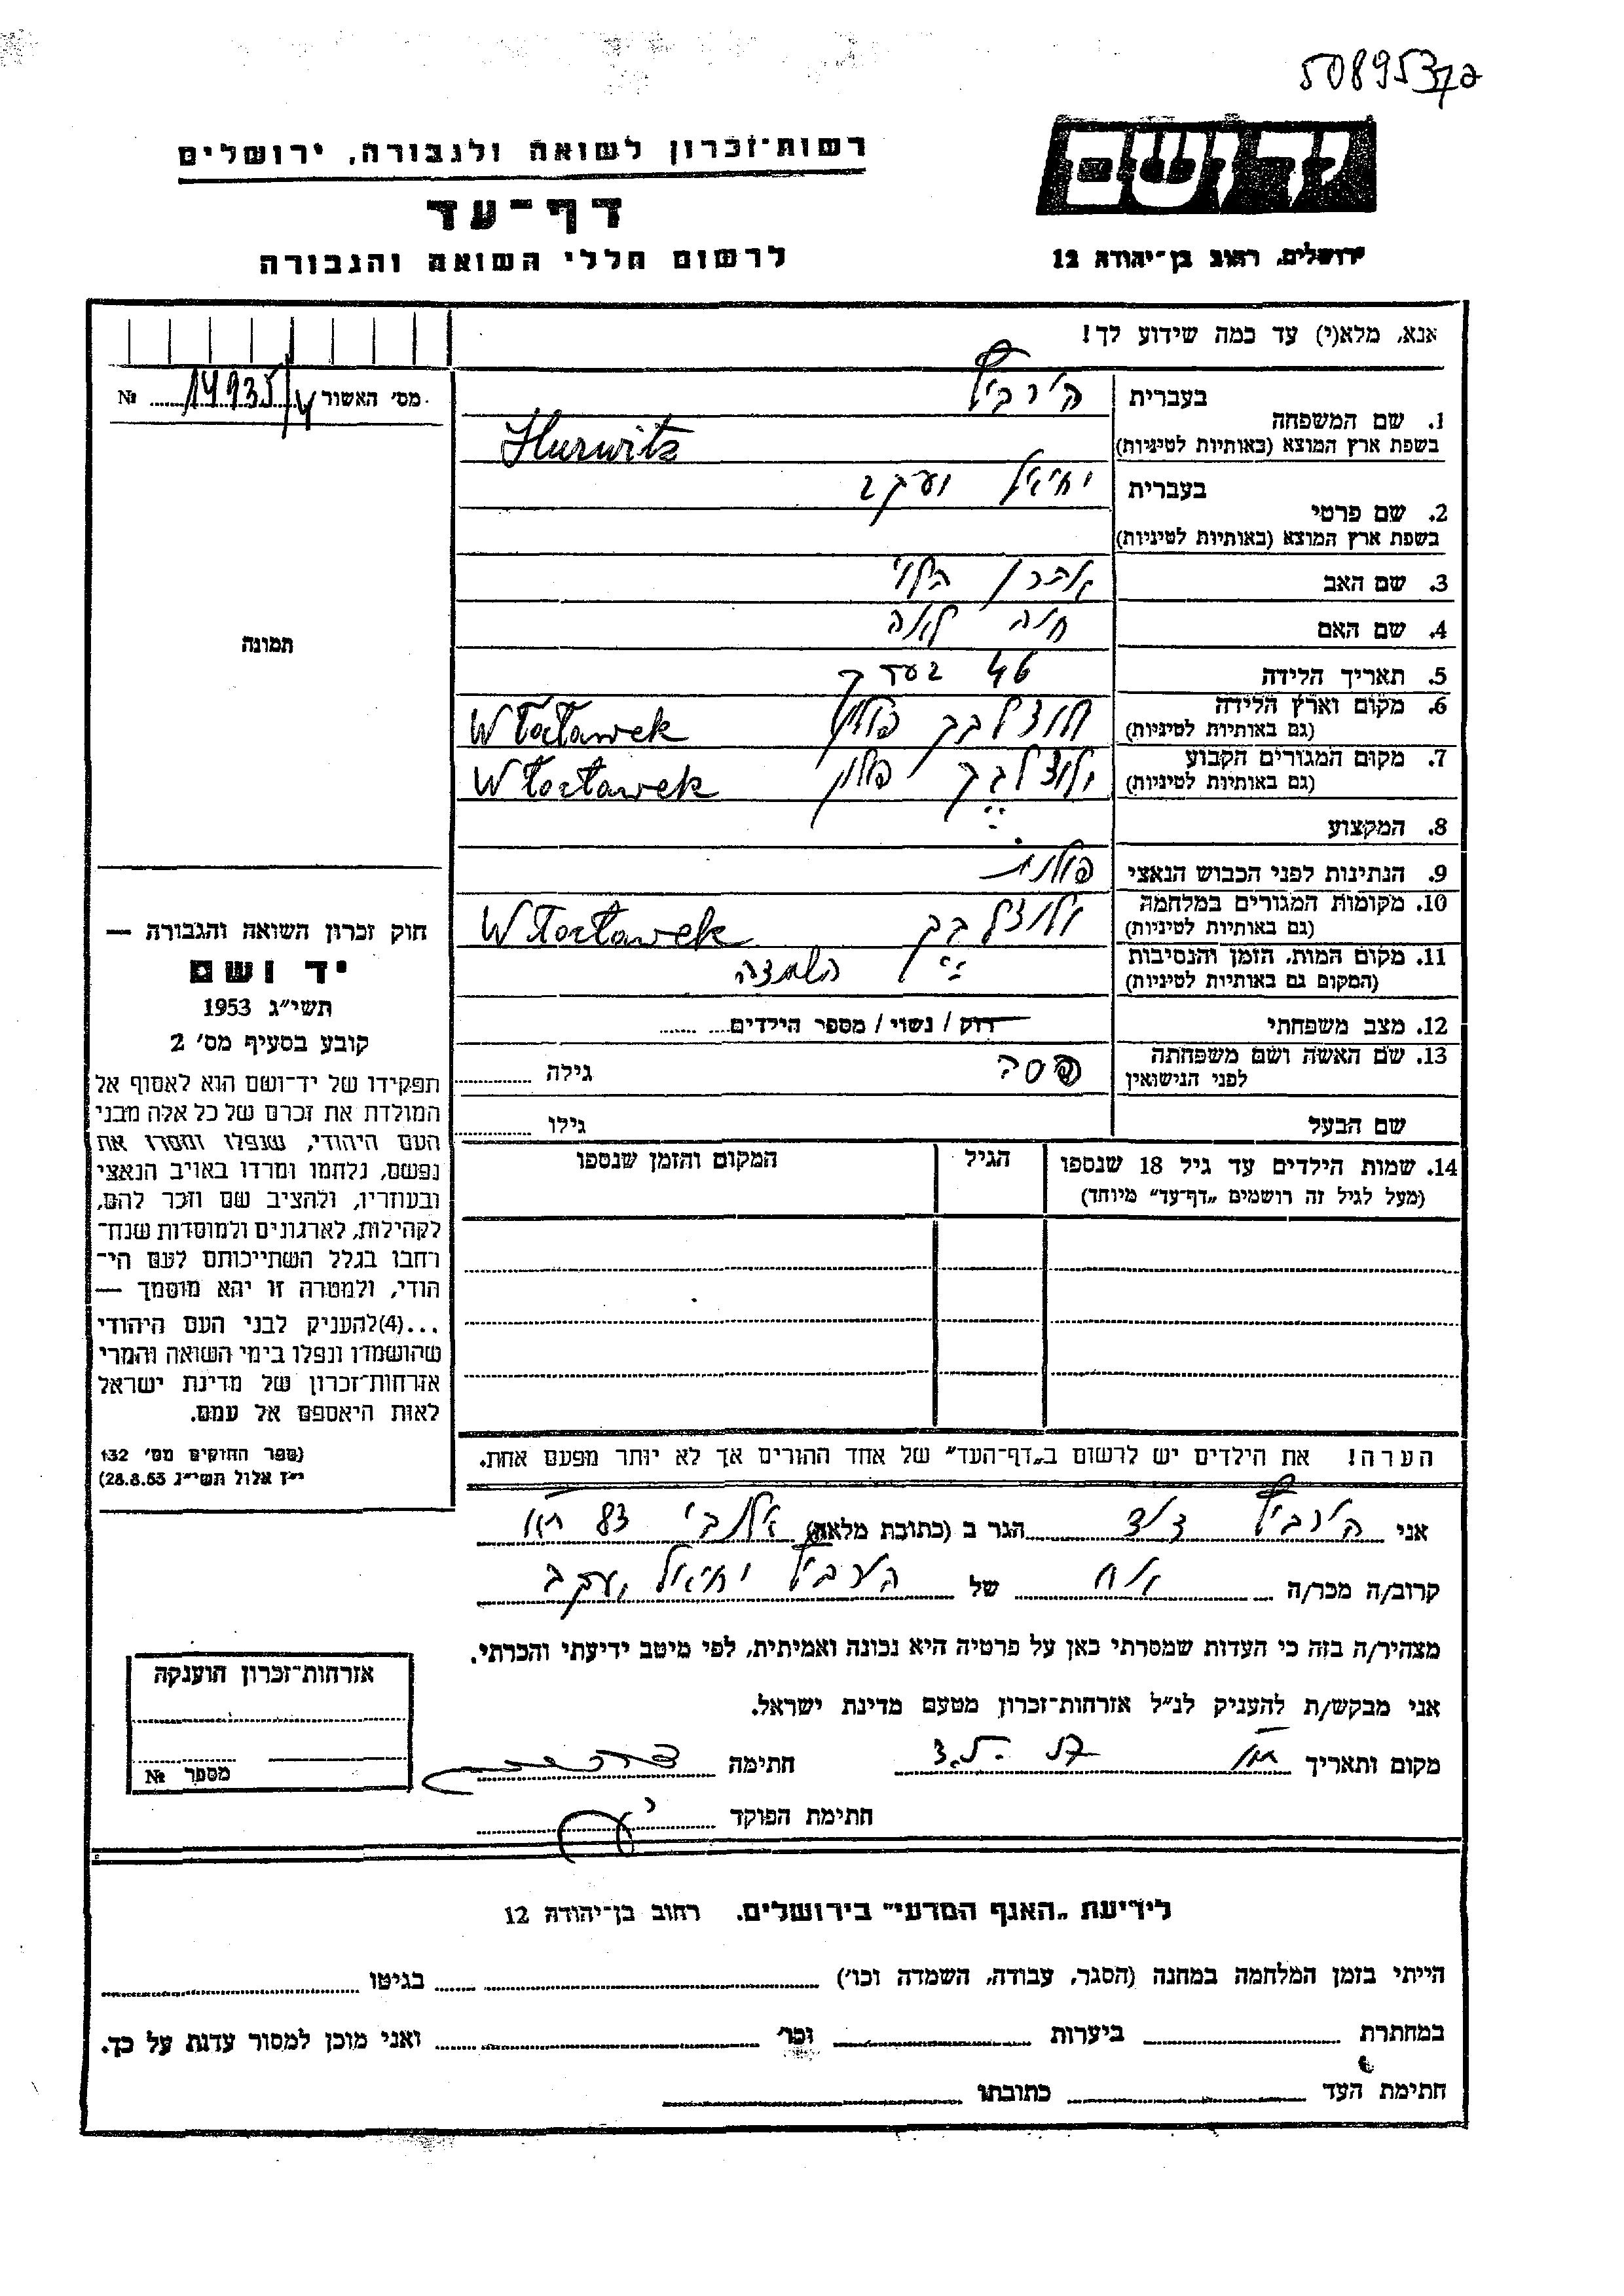 5089537
רשות־זכרון לשואה ולגבורה, ירושלים
יד ושם
דף־עד
לרשום חללי השואה והגבורה
ירושלים, רחוב בן־יהודה 12
אנא, מלא(י) עד כמה שידוע לך!
מס׳ האשור № 14935
1. שם המשפחה
בעברית
בשפת ארץ המוצא (באותיות לטיניות) Hurwitz
2. שם פרטי
בעברית יחיאל יעקב
בשפת ארץ המוצא (באותיות לטיניות)
3. שם האב אהרן הלוי
4. שם האם חנה לאה
5. תאריך הלידה 46 בערך
6. מקום וארץ הלידה פולין Włocławek
(גם באותיות לטיניות)
7. מקום המגורים הקבוע פולין Włocławek
(גם באותיות לטיניות)
8. המקצוע
9. הנתינות לפני הכבוש הנאצי פולנית
10. מקומות המגורים במלחמה Włocławek
(גם באותיות לטיניות)
11. מקום המות, הזמן והנסיבות
(המקום גם באותיות לטיניות)
12. מצב משפחתי רוק / נשוי / מספר הילדים
13. שם האשה ושם משפחתה
לפני הנישואין גילה
שם הבעל גילו
14. שמות הילדים עד גיל 18 שנספו
(מעל לגיל זה רושמים „דף־עד״ מיוחד)
הגיל
המקום והזמן שנספו
תמונה
חוק זכרון השואה והגבורה —
יד ושם
תשי״ג 1953
קובע בסעיף מס׳ 2
תפקידו של יד־ושם הוא לאסוף אל
המולדת את זכרם של כל אלה מבני
העם היהודי, שנפלו ומסרו את
נפשם, נלחמו ומרדו באויב הנאצי
ובעוזריו, ולהציב שם וזכר להם,
לקהילות, לארגונים ולמוסדות שנח־
רחבו בגלל השתייכותם לעם הי־
הודי, ולמטרה זו יהא מוסמך —
...(4)להעניק לבני העם היהודי
שהושמדו ונפלו בימי השואה והמרי
אזרחות־זכרון של מדינת ישראל
לאות היאספם אל עמם.
(ספר החוקים מס׳ 132
י״ז אלול תשי״ג 28.8.53)
הערה! את הילדים יש לרשום ב„דף־העד״ של אחד ההורים אך לא יותר מפעם אחת.
אני דוד הגר ב (כתובת מלאה) אלנבי 83
קרוב/ה מכר/ה אח של יחיאל יעקב
מצהיר/ה בזה כי העדות שמסרתי כאן על פרטיה היא נכונה ואמיתית, לפי מיטב ידיעתי והכרתי.
אני מבקש/ת להעניק לנ״ל אזרחות־זכרון מטעם מדינת ישראל.
מקום ותאריך חתימה
חתימת הפוקד
אזרחות־זכרון הוענקה
מספר №
לידיעת „האגף המדעי״ בירושלים, רחוב בן־יהודה 12
הייתי בזמן המלחמה במחנה (הסגר, עבודה, השמדה וכו׳) בגיטו
במחתרת ביערות וכו׳ ואני מוכן למסור עדות על כך.
חתימת העד כתובתו